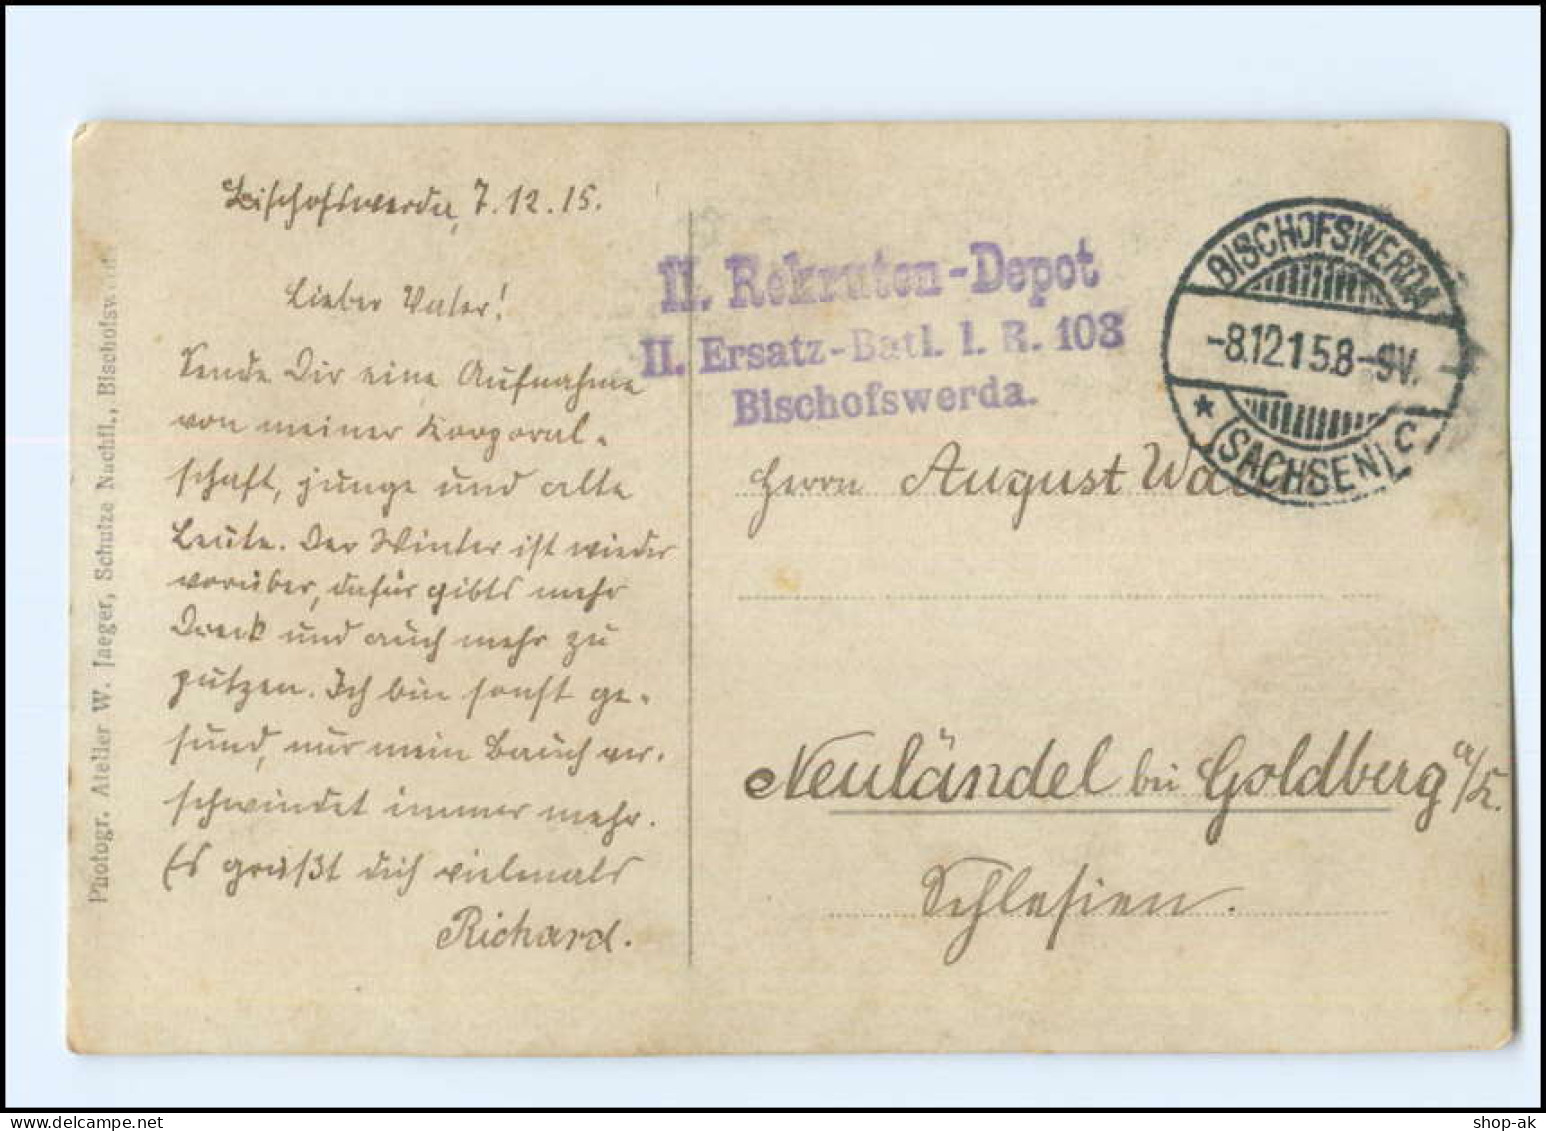 Bischofswerda, 7.12.15.
Lieber Vater!
Sende Dir eine Aufnahme
von meiner Korporal-
schaft, junge und alte
Leute. Der Winter ist wieder
vorüber, dafür gibts mehr
Dreck und auch mehr zu
putzen. Ich bin sonst ge-
sund, nur mein Bauch ver-
schwindet immer mehr.
Es grüßt dich vielmals
Richard.
Photogr. Atelier W. Jaeger, Schulze Nachfl., Bischofswerda
II. Rekruten-Depot
II. Ersatz-Batl. I. R. 103
Bischofswerda.
BISCHOFSWERDA
-8.12.15.8-9V.
* (SACHSEN) C
Herrn August
Neuländel bei Goldberg a/K.
Schlesien.
shop-ak